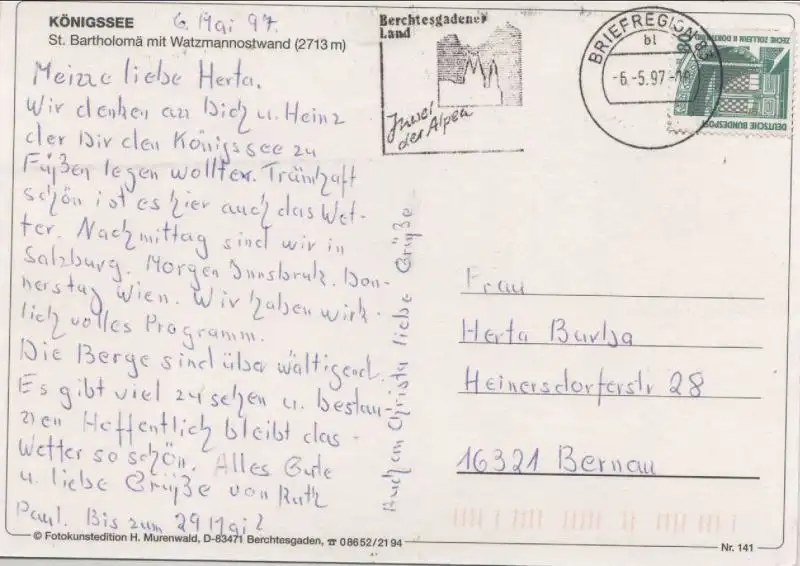 KÖNIGSSEE
St. Bartholomä mit Watzmannostwand (2713 m)
6. Mai 97.
Meine liebe Herta.
Wir denken an Dich u. Heinz
der Dir den Königssee zu
Füßen legen wollte. Traumhaft
schön ist es hier auch das Wet-
ter. Nachmittag sind wir in
Salzburg. Morgen Innsbruk. Don-
nerstag Wien. Wir haben wirk-
lich volles Programm.
Die Berge sind überwältigend.
Es gibt viel zu sehen u. bestau-
nen Hoffentlich bleibt das
Wetter so schön. Alles Gute
u. liebe Grüße von Ruth
Paul. Bis zum 29 Mai?
Auch an Christa liebe Grüße
Berchtesgadener
Land
Juwel
der Alpen
BRIEFREGION 83
bl
-6.-5.97
ZECHE ZOLLERN II DORTMUND
DEUTSCHE BUNDESPOST
Frau
Herta
Heinersdorferstr 28
16321 Bernau
© Fotokunstedition H. Murenwald, D-83471 Berchtesgaden, ☎ 0 86 52/21 94
Nr. 141